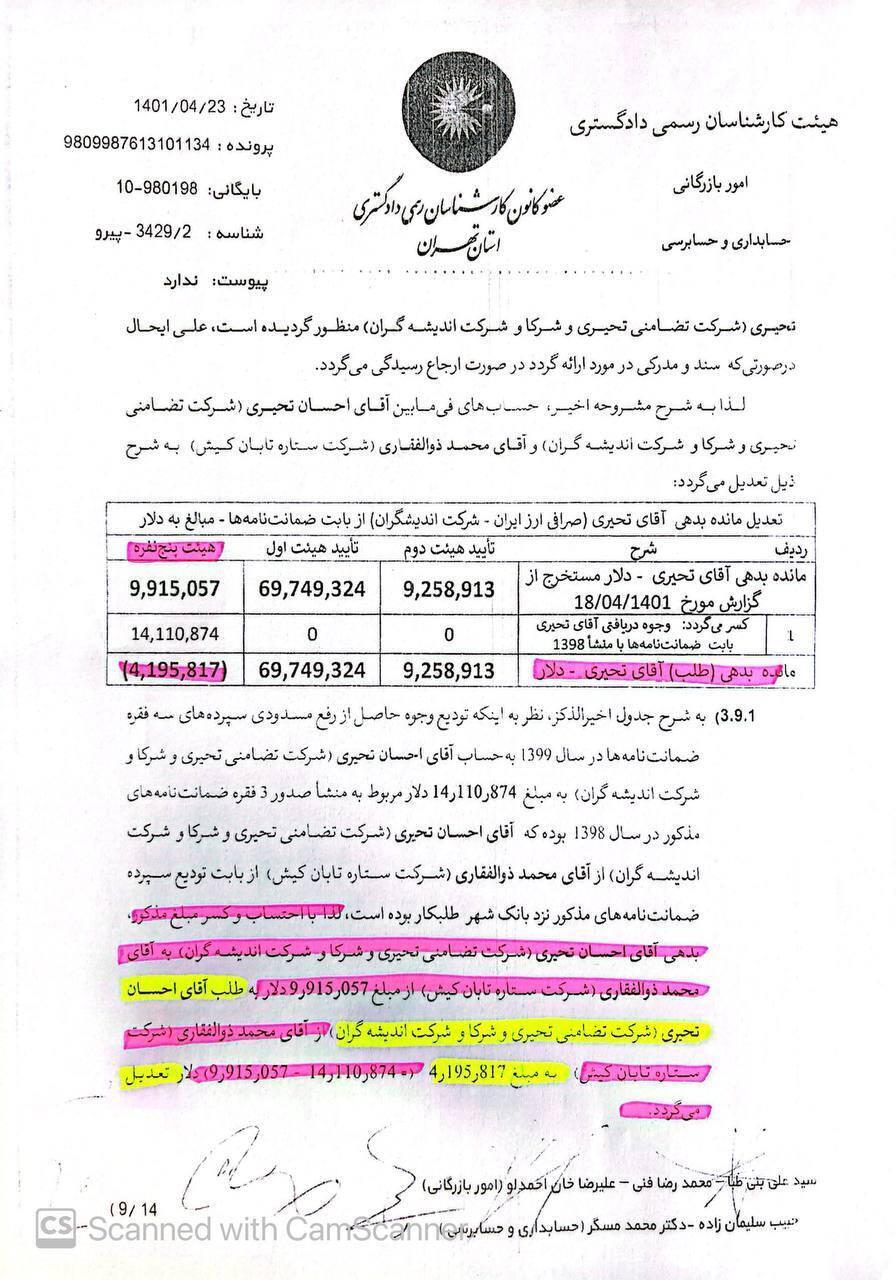 هیئت کارشناسان رسمی دادگستری
امور بازرگانی
حسابداری و حسابرسی
عضو کانون کارشناسان رسمی دادگستری
استان تهران
تاریخ: 1401/04/23
پرونده: 9809987613101134
بایگانی: 980198-10
شناسه: 3429/2 -پیرو
پیوست: ندارد
تحیری (شرکت تضامنی تحیری و شرکا و شرکت اندیشه گران) منظور گردیده است، علی ایحال
درصورتی‌که سند و مدرکی در مورد ارائه گردد در صورت ارجاع رسیدگی می‌گردد.
لذا به شرح مشروحه اخیر، حساب‌های فی‌مابین آقای احسان تحیری (شرکت تضامنی
تحیری و شرکا و شرکت اندیشه گران) و آقای محمد ذوالفقاری (شرکت ستاره تابان کیش) به شرح
ذیل تعدیل می‌گردد:
تعدیل مانده بدهی آقای تحیری (صرافی ارز ایران - شرکت اندیشگران) از بابت ضمانت‌نامه‌ها - مبالغ به دلار
ردیف شرح تأیید هیئت دوم تأیید هیئت اول هیئت پنج‌نفره
مانده بدهی آقای تحیری - دلار مستخرج از
گزارش مورخ 18/04/1401 9,258,913 69,749,324 9,915,057
1 کسر می‌گردد: وجوه دریافتی آقای تحیری
بابت ضمانت‌نامه‌ها با منشأ 1398 0 0 14,110,874
مانده بدهی (طلب) آقای تحیری - دلار 9,258,913 69,749,324 (4,195,817)
3.9.1) به شرح جدول اخیرالذکر، نظر به اینکه تودیع وجوه حاصل از رفع مسدودی سپرده‌های سه فقره
ضمانت‌نامه‌ها در سال 1399 به حساب آقای احسان تحیری (شرکت تضامنی تحیری و شرکا و
شرکت اندیشه گران) به مبلغ 14ر110ر874 دلار مربوط به منشأ صدور 3 فقره ضمانت‌نامه‌های
مذکور در سال 1398 بوده که آقای احسان تحیری (شرکت تضامنی تحیری و شرکا و شرکت
اندیشه گران) از آقای محمد ذوالفقاری (شرکت ستاره تابان کیش) از بابت تودیع سپرده
ضمانت‌نامه‌های مذکور نزد بانک شهر طلبکار بوده است، لذا با احتساب و کسر مبلغ مذکور،
بدهی آقای احسان تحیری (شرکت تضامنی تحیری و شرکا و شرکت اندیشه گران) به آقای
محمد ذوالفقاری (شرکت ستاره تابان کیش) از مبلغ 9ر915ر057 دلار به طلب آقای احسان
تحیری (شرکت تضامنی تحیری و شرکا و شرکت اندیشه گران) از آقای محمد ذوالفقاری (شرکت
ستاره تابان کیش) به مبلغ 4ر195ر817 (= 14ر110ر874 - 9ر915ر057) دلار تعدیل
می‌گردد.
سید علی بنی طبا – محمد رضا فنی – علیرضا خان احمدلو (امور بازرگانی)
حبیب سلیمان زاده -دکتر محمد مسگر (حسابداری و حسابرسی)
(9/ 14
CS Scanned with CamScanner